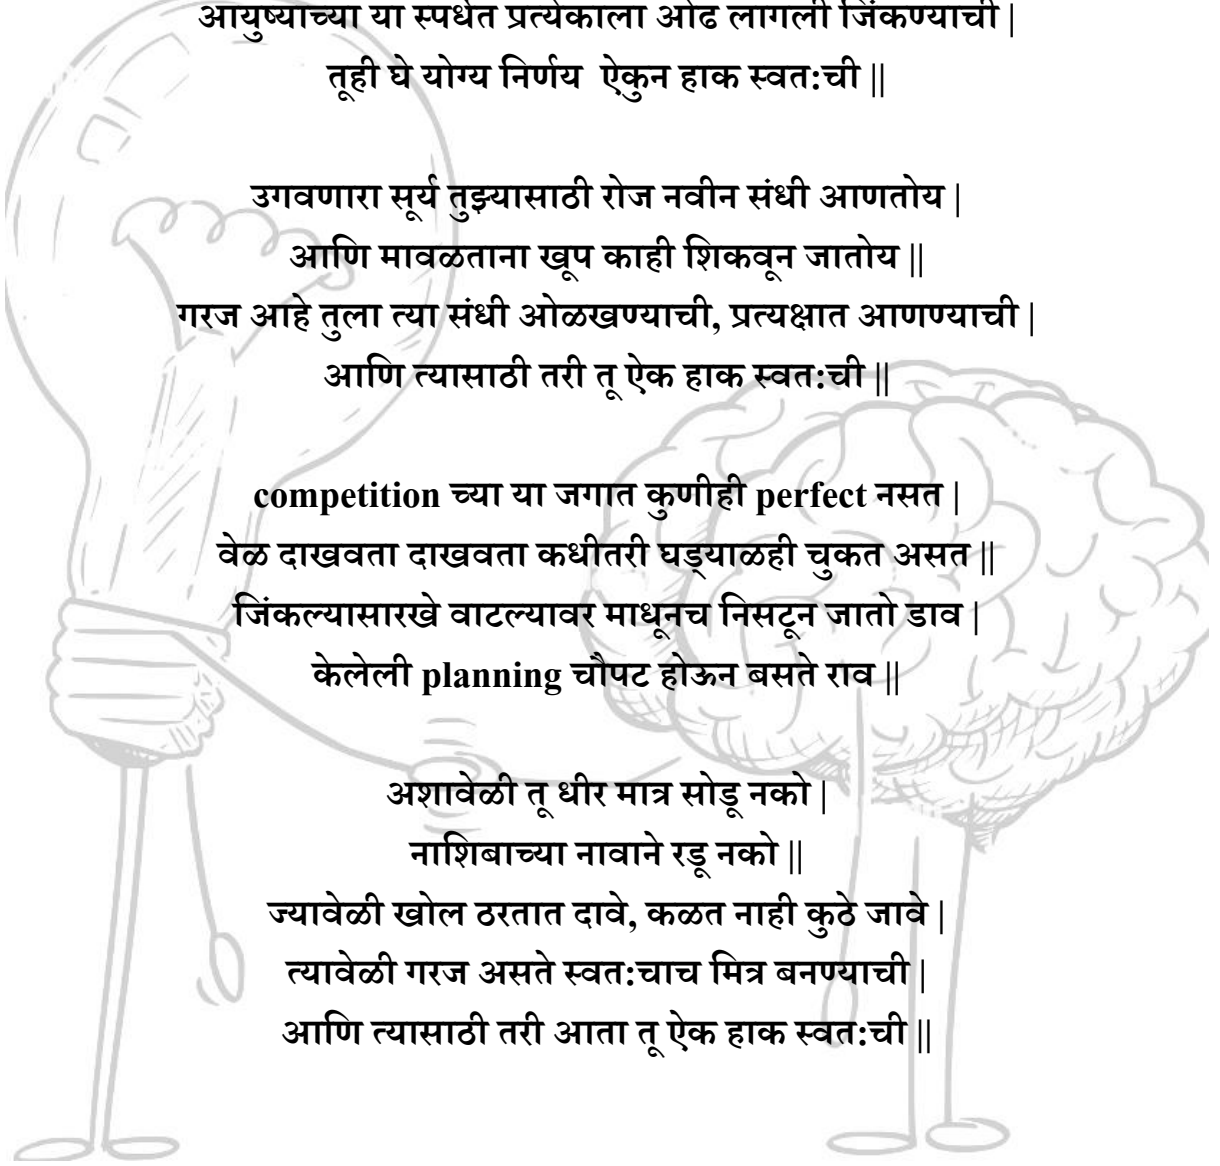 आयुष्याच्या या स्पर्धेत प्रत्येकाला ओढ लागली जिंकण्याची |
तूही घे योग्य निर्णय ऐकुन हाक स्वत:ची ||
उगवणारा सूर्य तुझ्यासाठी रोज नवीन संधी आणतोय |
आणि मावळताना खूप काही शिकवून जातोय ||
गरज आहे तुला त्या संधी ओळखण्याची, प्रत्यक्षात आणण्याची |
आणि त्यासाठी तरी तू ऐक हाक स्वत:ची ||
competition च्या या जगात कुणीही perfect नसत |
वेळ दाखवता दाखवता कधीतरी घड्याळही चुकत असत ||
जिंकल्यासारखे वाटल्यावर माधूनच निसटून जातो डाव |
केलेली planning चौपट होऊन बसते राव ||
अशावेळी तू धीर मात्र सोडू नको |
नाशिबाच्या नावाने रडू नको ||
ज्यावेळी खोल ठरतात दावे, कळत नाही कुठे जावे |
त्यावेळी गरज असते स्वत:चाच मित्र बनण्याची |
आणि त्यासाठी तरी आता तू ऐक हाक स्वत:ची ||